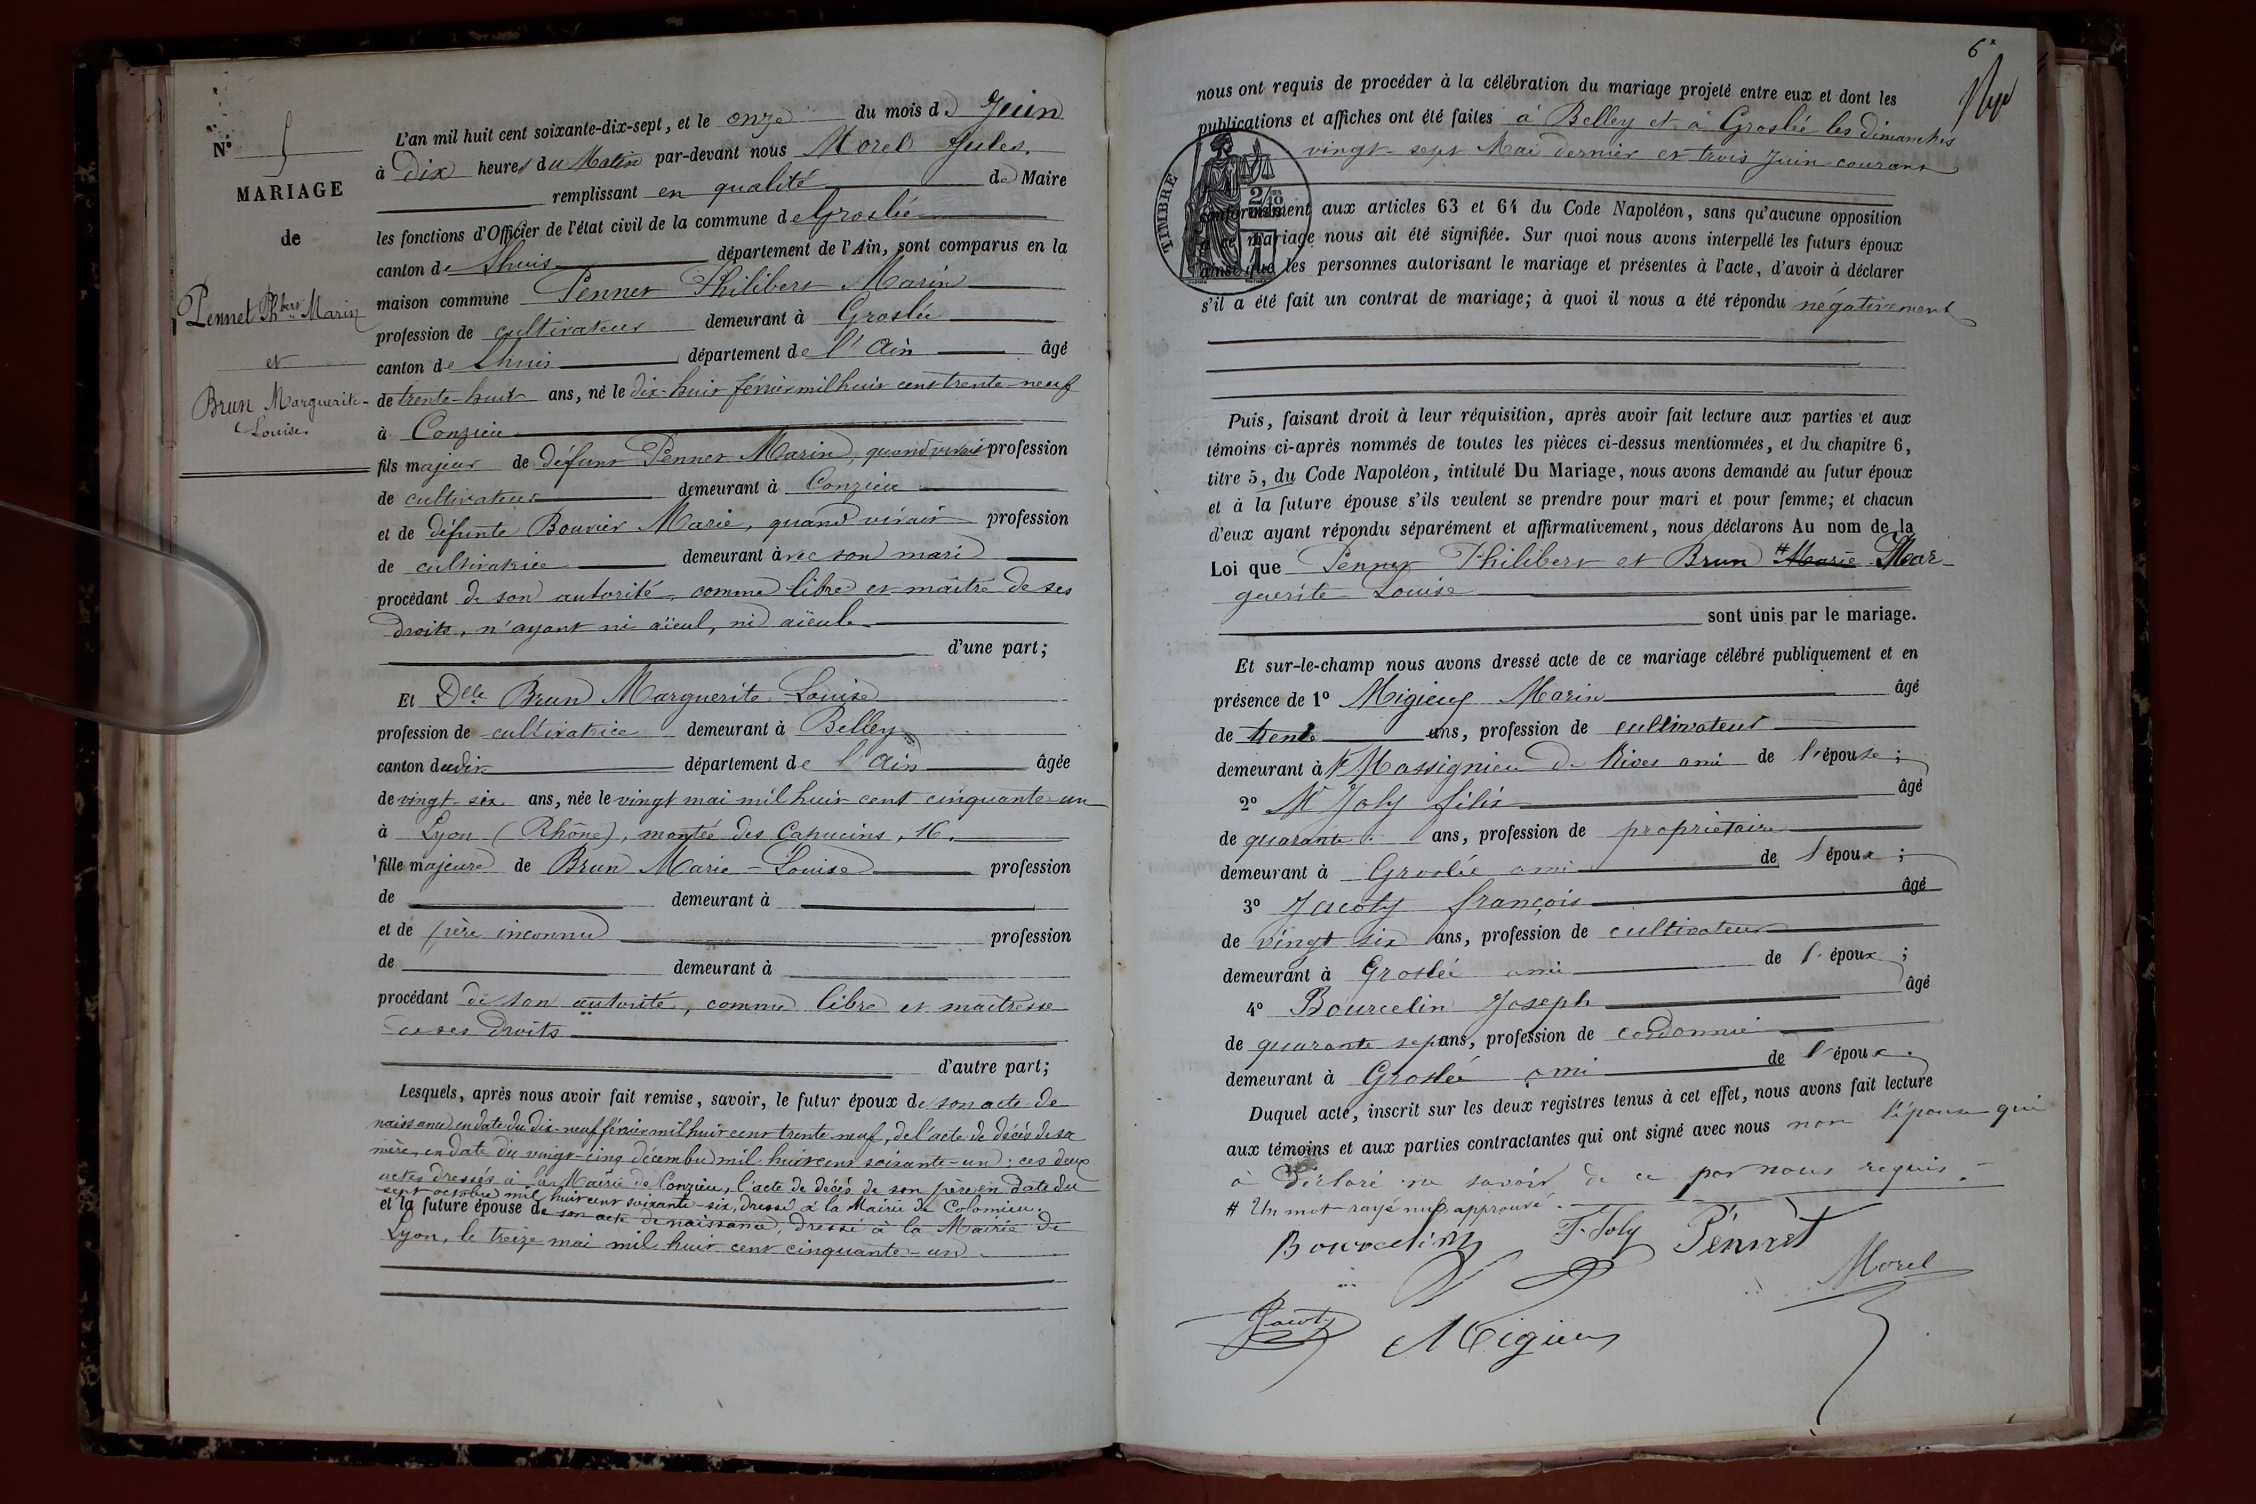 N° 5
MARIAGE
de
Pennet Phbert Marin
et
Brun Marguerite-
Louise.
L'an mil huit cent soixante-dix-sept, et le onze du mois de Juin
à dix heures du Matin par-devant nous Morel Jules,
remplissant en qualité de Maire
les fonctions d'Officier de l'état civil de la commune de Groslée
canton de Lhuis département de l'Ain, sont comparus en la
maison commune Pennet Philibert Marin
profession de cultivateur demeurant à Groslée
canton de Lhuis département de l'Ain âgé
de trente-huit ans, né le dix-huit février mil huit cent trente-neuf
à Conzieu
fils majeur de défunt Pennet Marin, quand vivait profession
de cultivateur demeurant à Conzieu
et de défunte Bouvier Marie, quand vivait profession
de cultivatrice demeurant avec son mari
procédant de son autorité, comme libre et maître de ses
droits, n'ayant ni aïeul, ni aïeule
d'une part;
Et Dlle Brun Marguerite Louise
profession de cultivatrice demeurant à Belley
canton dudit département de l'Ain âgée
de vingt-six ans, née le vingt mai mil huit cent cinquante-un
à Lyon (Rhône), montée des Capucins, 16.
fille majeure de Brun Marie-Louise profession
de demeurant à
et de père inconnu profession
de demeurant à
procédant de son autorité, comme libre et maîtresse
de ses droits
d'autre part;
Lesquels, après nous avoir fait remise, savoir, le futur époux de son acte de
naissance en date du dix-neuf février mil huit cent trente neuf, de l'acte de décès de sa
mère, en date du vingt-cinq décembre mil huit cent soixante-un; ces deux
actes dressés à la Mairie de Conzieu, l'acte de décès de son père en date du
sept octobre mil huit cent soixante-six, dressé à la Mairie de Colomieu.
et la future épouse de son acte de naissance, dressé à la Mairie de
Lyon, le treize mai mil huit cent cinquante-un.
6
nous ont requis de procéder à la célébration du mariage projeté entre eux et dont les
publications et affiches ont été faites à Belley et à Groslée les dimanches
vingt-sept Mai dernier et trois Juin courant
TIMBRE
conformément aux articles 63 et 64 du Code Napoléon, sans qu'aucune opposition
à ce mariage nous ait été signifiée. Sur quoi nous avons interpellé les futurs époux
ainsi que les personnes autorisant le mariage et présentes à l'acte, d'avoir à déclarer
s'il a été fait un contrat de mariage; à quoi il nous a été répondu négativement
Puis, faisant droit à leur réquisition, après avoir fait lecture aux parties et aux
témoins ci-après nommés de toutes les pièces ci-dessus mentionnées, et du chapitre 6,
titre 5, du Code Napoléon, intitulé Du Mariage, nous avons demandé au futur époux
et à la future épouse s'ils veulent se prendre pour mari et pour femme; et chacun
d'eux ayant répondu séparément et affirmativement, nous déclarons Au nom de la
Loi que Pennet Philibert et Brun # Marie Mar-
guerite Louise
sont unis par le mariage.
Et sur-le-champ nous avons dressé acte de ce mariage célébré publiquement et en
présence de 1° Migieux Marin âgé
de trente ans, profession de cultivateur
demeurant à Massignieu de Rives ami de l'épouse;
2° Mr Joly félix âgé
de quarante ans, profession de propriétaire
demeurant à Groslée ami de l'époux;
3° Jacoty françois âgé
de vingt six ans, profession de cultivateur
demeurant à Groslée ami de l'époux;
4° Bourcelin Joseph âgé
de quarante sept ans, profession de cordonnier
demeurant à Groslée ami de l'époux.
Duquel acte, inscrit sur les deux registres tenus à cet effet, nous avons fait lecture
aux témoins et aux parties contractantes qui ont signé avec nous non l'épouse qui
a déclaré ne savoir de ce par nous requis.
# Un mot rayé nul approuvé.
Bourcelin F. Joly Pennet
Morel
Jacoty Migieux